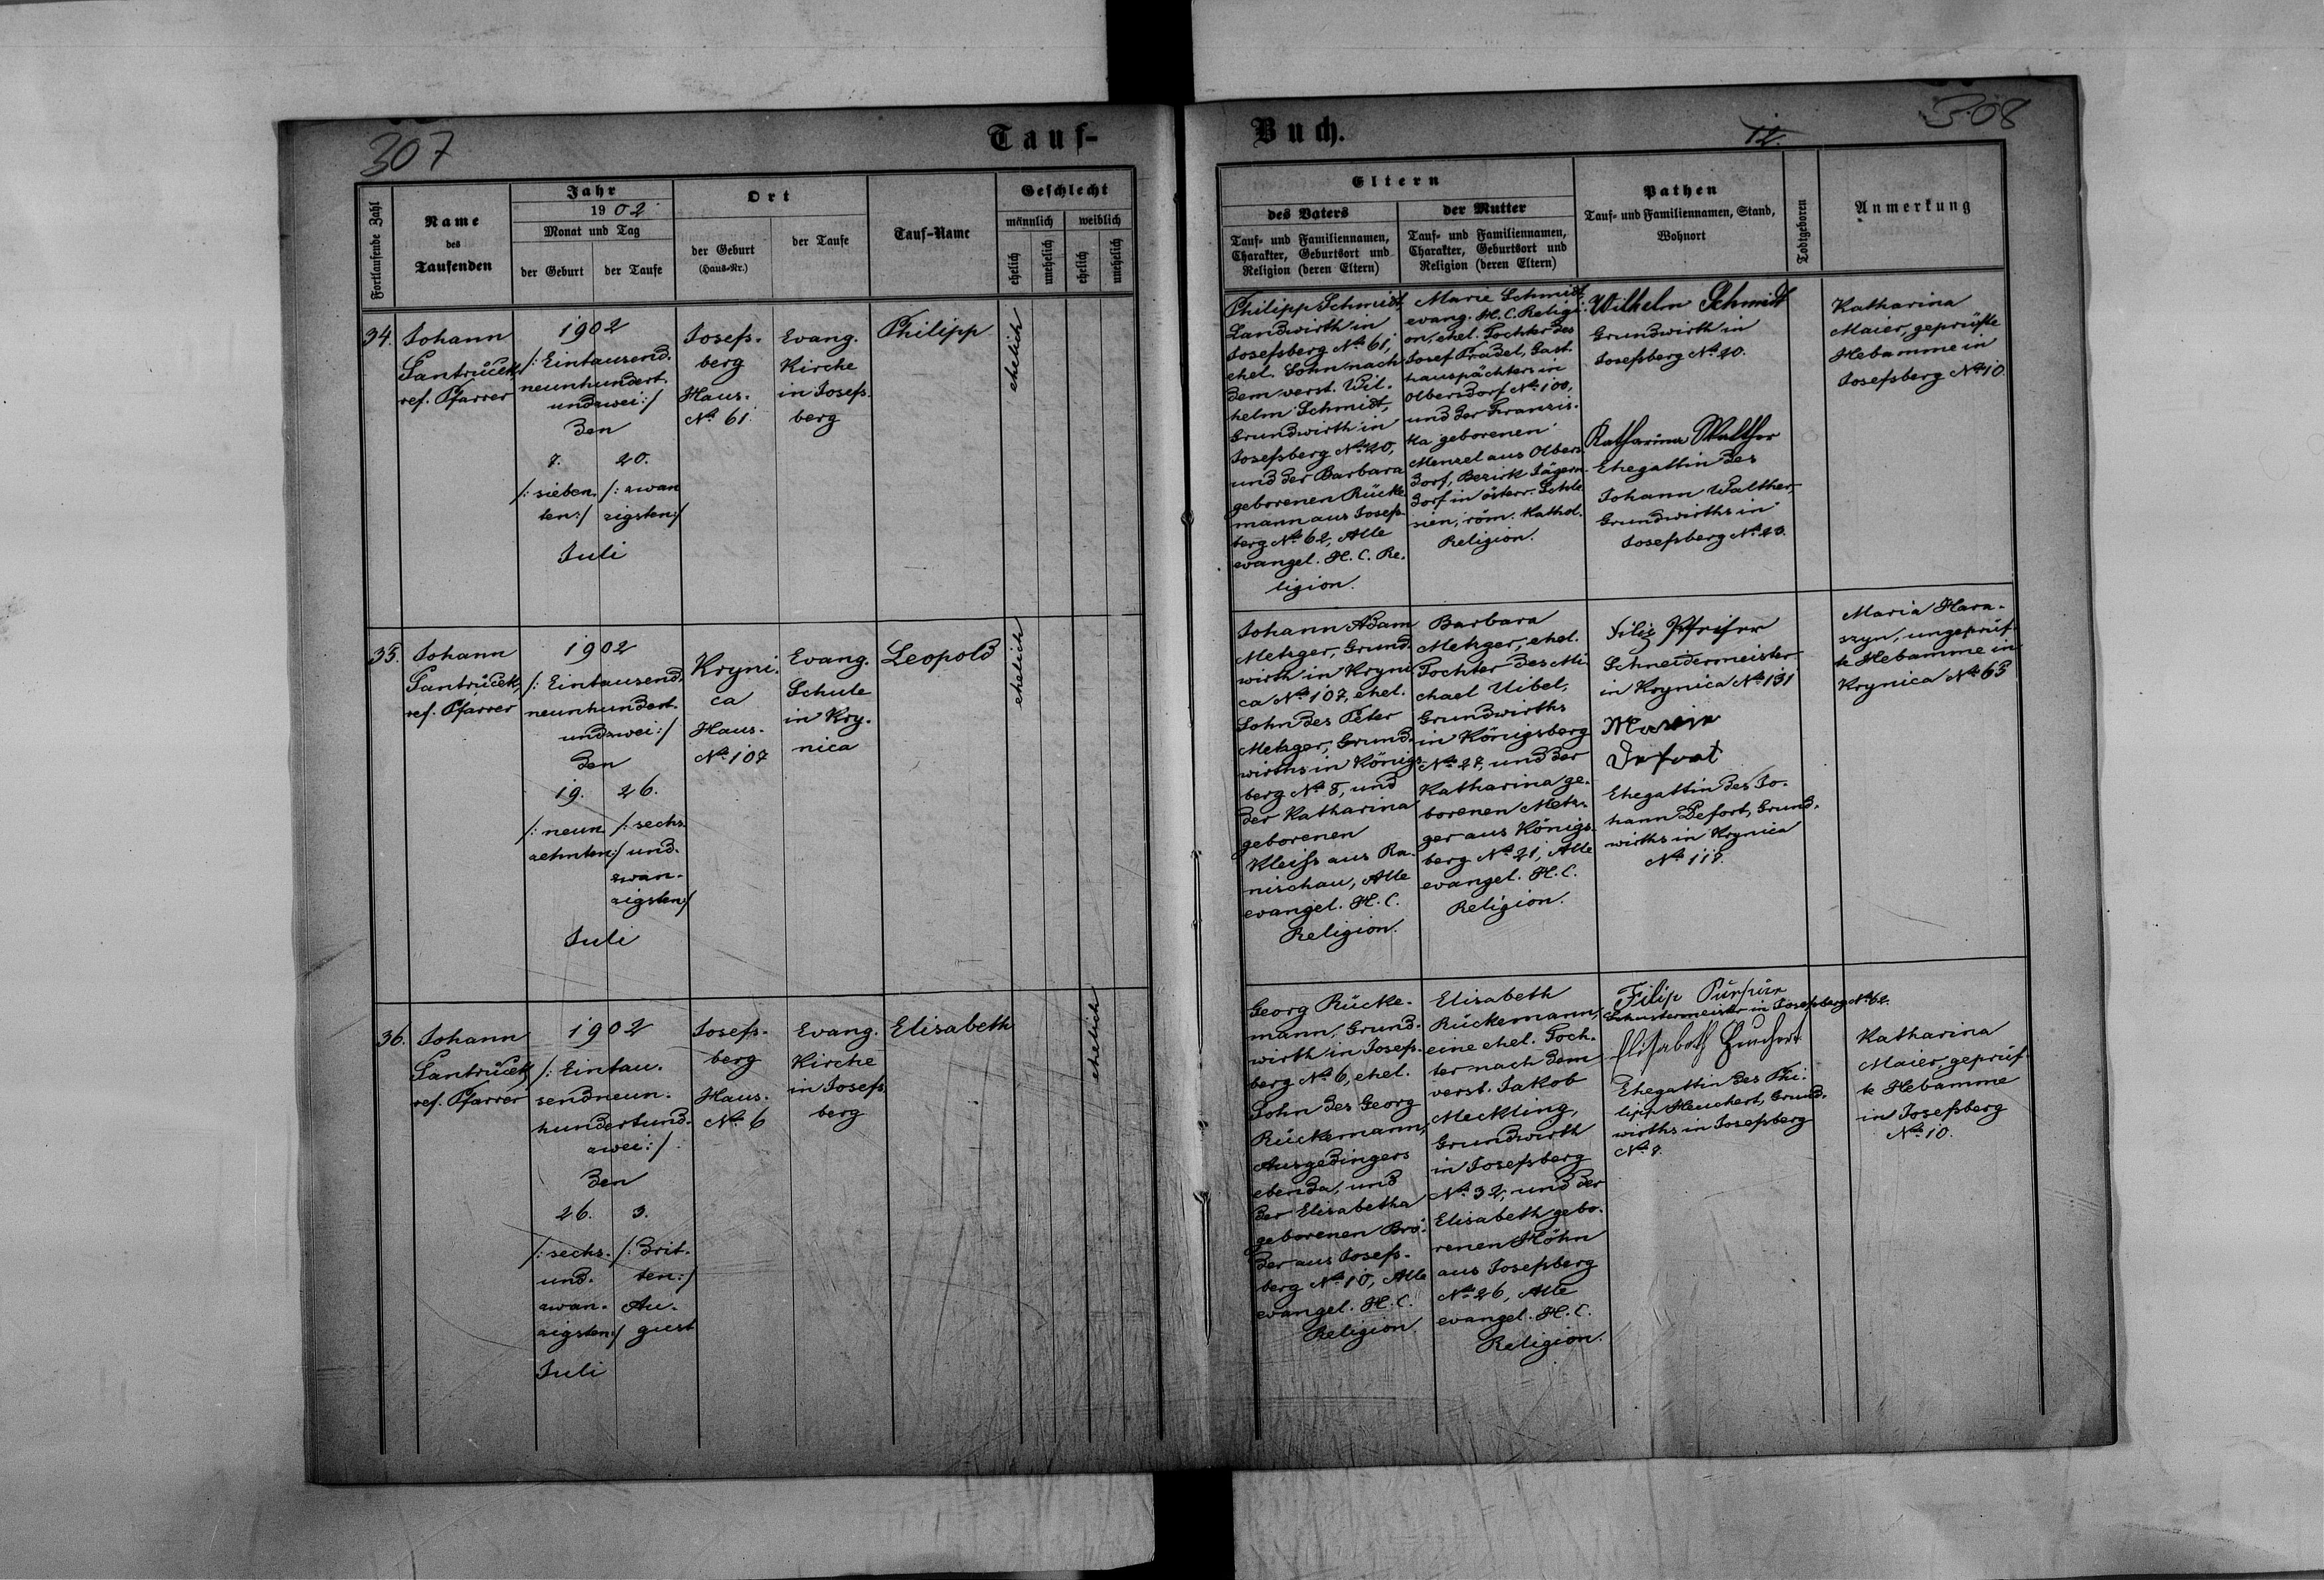 307
Tauf-
Fortlaufende Zahl
Name
des
Taufenden
Jahr
1902
Monat und Tag
der Geburt
der Taufe
Ort
der Geburt
(Haus-Nr.)
der Taufe
Tauf-Name
Geschlecht
männlich
weiblich
ehelich
unehelich
ehelich
unehelich
34.
Johann
Santrůček,
ref. Pfarrer
1902
/: Eintausend-
neunhundert-
undzwei :/
den
7.
/: sieben-
ten :/
20.
/: zwan
zigsten :/
Juli
Josefs-
berg
Haus-
No 61
Evang.
Kirche
in Josefs-
berg
Philipp
ehelich
35.
Johann
Santrůček,
ref. Pfarrer
1902
/: Eintausend-
neunhundert-
undzwei :/
den
19.
/: neun-
zehnten :/
26.
/: sechs-
und-
zwan-
zigsten :/
Juli
Kryni-
ca
Haus-
No 107
Evang.
Schule
in Kry-
nica
Leopold
ehelich
36.
Johann
Santrůček,
ref. Pfarrer
1902
/: Eintau-
sendneun-
hundertund-
zwei :/
den
26.
/: sechs-
und-
zwan-
zigsten :/
Juli
3.
/: drit-
ten :/
Au-
gust
Josefs-
berg
Haus-
No 6
Evang.
Kirche
in Josefs-
berg
Elisabeth
ehelich
Buch.
12.
308
Eltern
des Vaters
Tauf- und Familiennamen,
Charakter, Geburtsort und
Religion (deren Eltern)
der Mutter
Tauf- und Familiennamen,
Charakter, Geburtsort und
Religion (deren Eltern)
Pathen
Tauf- und Familiennamen, Stand,
Wohnort
Todtgeboren
Anmerkung
Philipp Schmidt,
Landwirth in
Josefsberg No 61,
ehel. Sohn nach
dem verst. Wil-
helm Schmidt,
Grundwirth in
Josefsberg No 20,
und der Barbara
geborenen Rücke
mann aus Josefs-
berg No 62, Alle
evangel. H. C. Re-
ligion.
Marie Schmidt,
evang. H. C. Religi-
on, ehel. Tochter des
Josef Pradel, Gast-
hauspächters in
Olbersdorf No 100,
und der Franzis-
ka geborenen
Menzel aus Olbers-
dorf, Bezirk Jägern-
dorf in österr. Schle
sien, röm. kathol.
Religion.
Wilhelm Schmidt
Grundwirth in
Josefsberg No 20.
Katharina Walther
Ehegattin des
Johann Walther,
Grundwirths in
Josefsberg No 20.
Katharina
Maier, geprüfte
Hebamme in
Josefsberg No 10.
Johann Adam
Metzger, Grund-
wirth in Kryni
ca No 107, ehel.
Sohn des Peter
Metzger, Grund-
wirths in Königs-
berg No 8, und
der Katharina
geborenen
Kleiss aus Ra-
nischau, Alle
evangel. H. C.
Religion.
Barbara
Metzger, ehel.
Tochter des Mi
chael Uibel,
Grundwirths
in Königsberg
No 27, und der
Katharina ge-
borenen Metz-
ger aus Königs-
berg No 21, Alle
evangel. H. C.
Religion.
Filip Pfeifer
Schneidermeister
in Krynica No 131
Defort
Ehegattin des Jo-
hann Defort, Grund-
wirths in Krynica
No 117.
Maria Hara-
szyn, ungeprüf-
te Hebamme in
Krynica No 63
Georg Rücke-
mann, Grund-
wirth in Josefs-
berg No 6, ehel.
Sohn des Georg
Rückemann,
Ausgedingers
ebenda, und
der Elisabetha
geborenen Brö-
der aus Josefs-
berg No 10, Alle
evangel. H. C.
Religion.
Elisabeth
Rückemann,
eine ehel. Toch-
ter nach dem
verst. Jakob
Meckling,
Grundwirth
in Josefsberg
No 32, und der
Elisabeth gebo-
renen Höhn
aus Josefsberg
No 26, Alle
evangel. H. C.
Religion.
Filip
Schustermeister in Josefsberg No 62.
Elisabeth Heuchert
Ehegattin des Phi-
lipp Heuchert, Grund-
wirths in Josefsberg
No 7.
Katharina
Maier, geprüf-
te Hebamme
in Josefsberg
No 10.